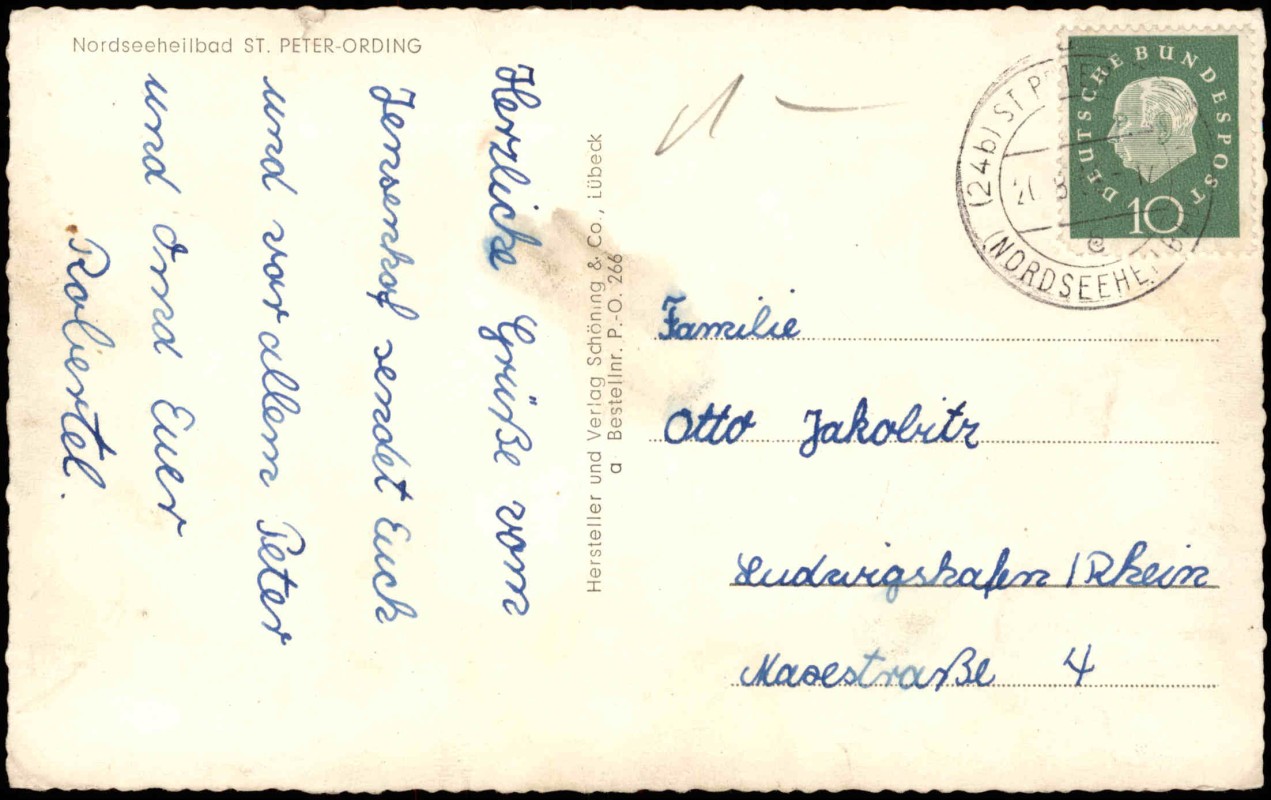 Nordseeheilbad ST. PETER-ORDING
Herzliche Grüße vom
Jensenhof sendet Euch
und vor allem Peter
und Omd Euer
Robertel.
Hersteller und Verlag Schöning & Co., Lübeck
a Bestellnr. P.-O. 266
DEUTSCHE BUNDESPOST
10
(24b) ST PETE
8
e
(NORDSEEHEILB
Familie
Otto Jakobitz
Ludwigshafen / Rhein
Maxestraße 4